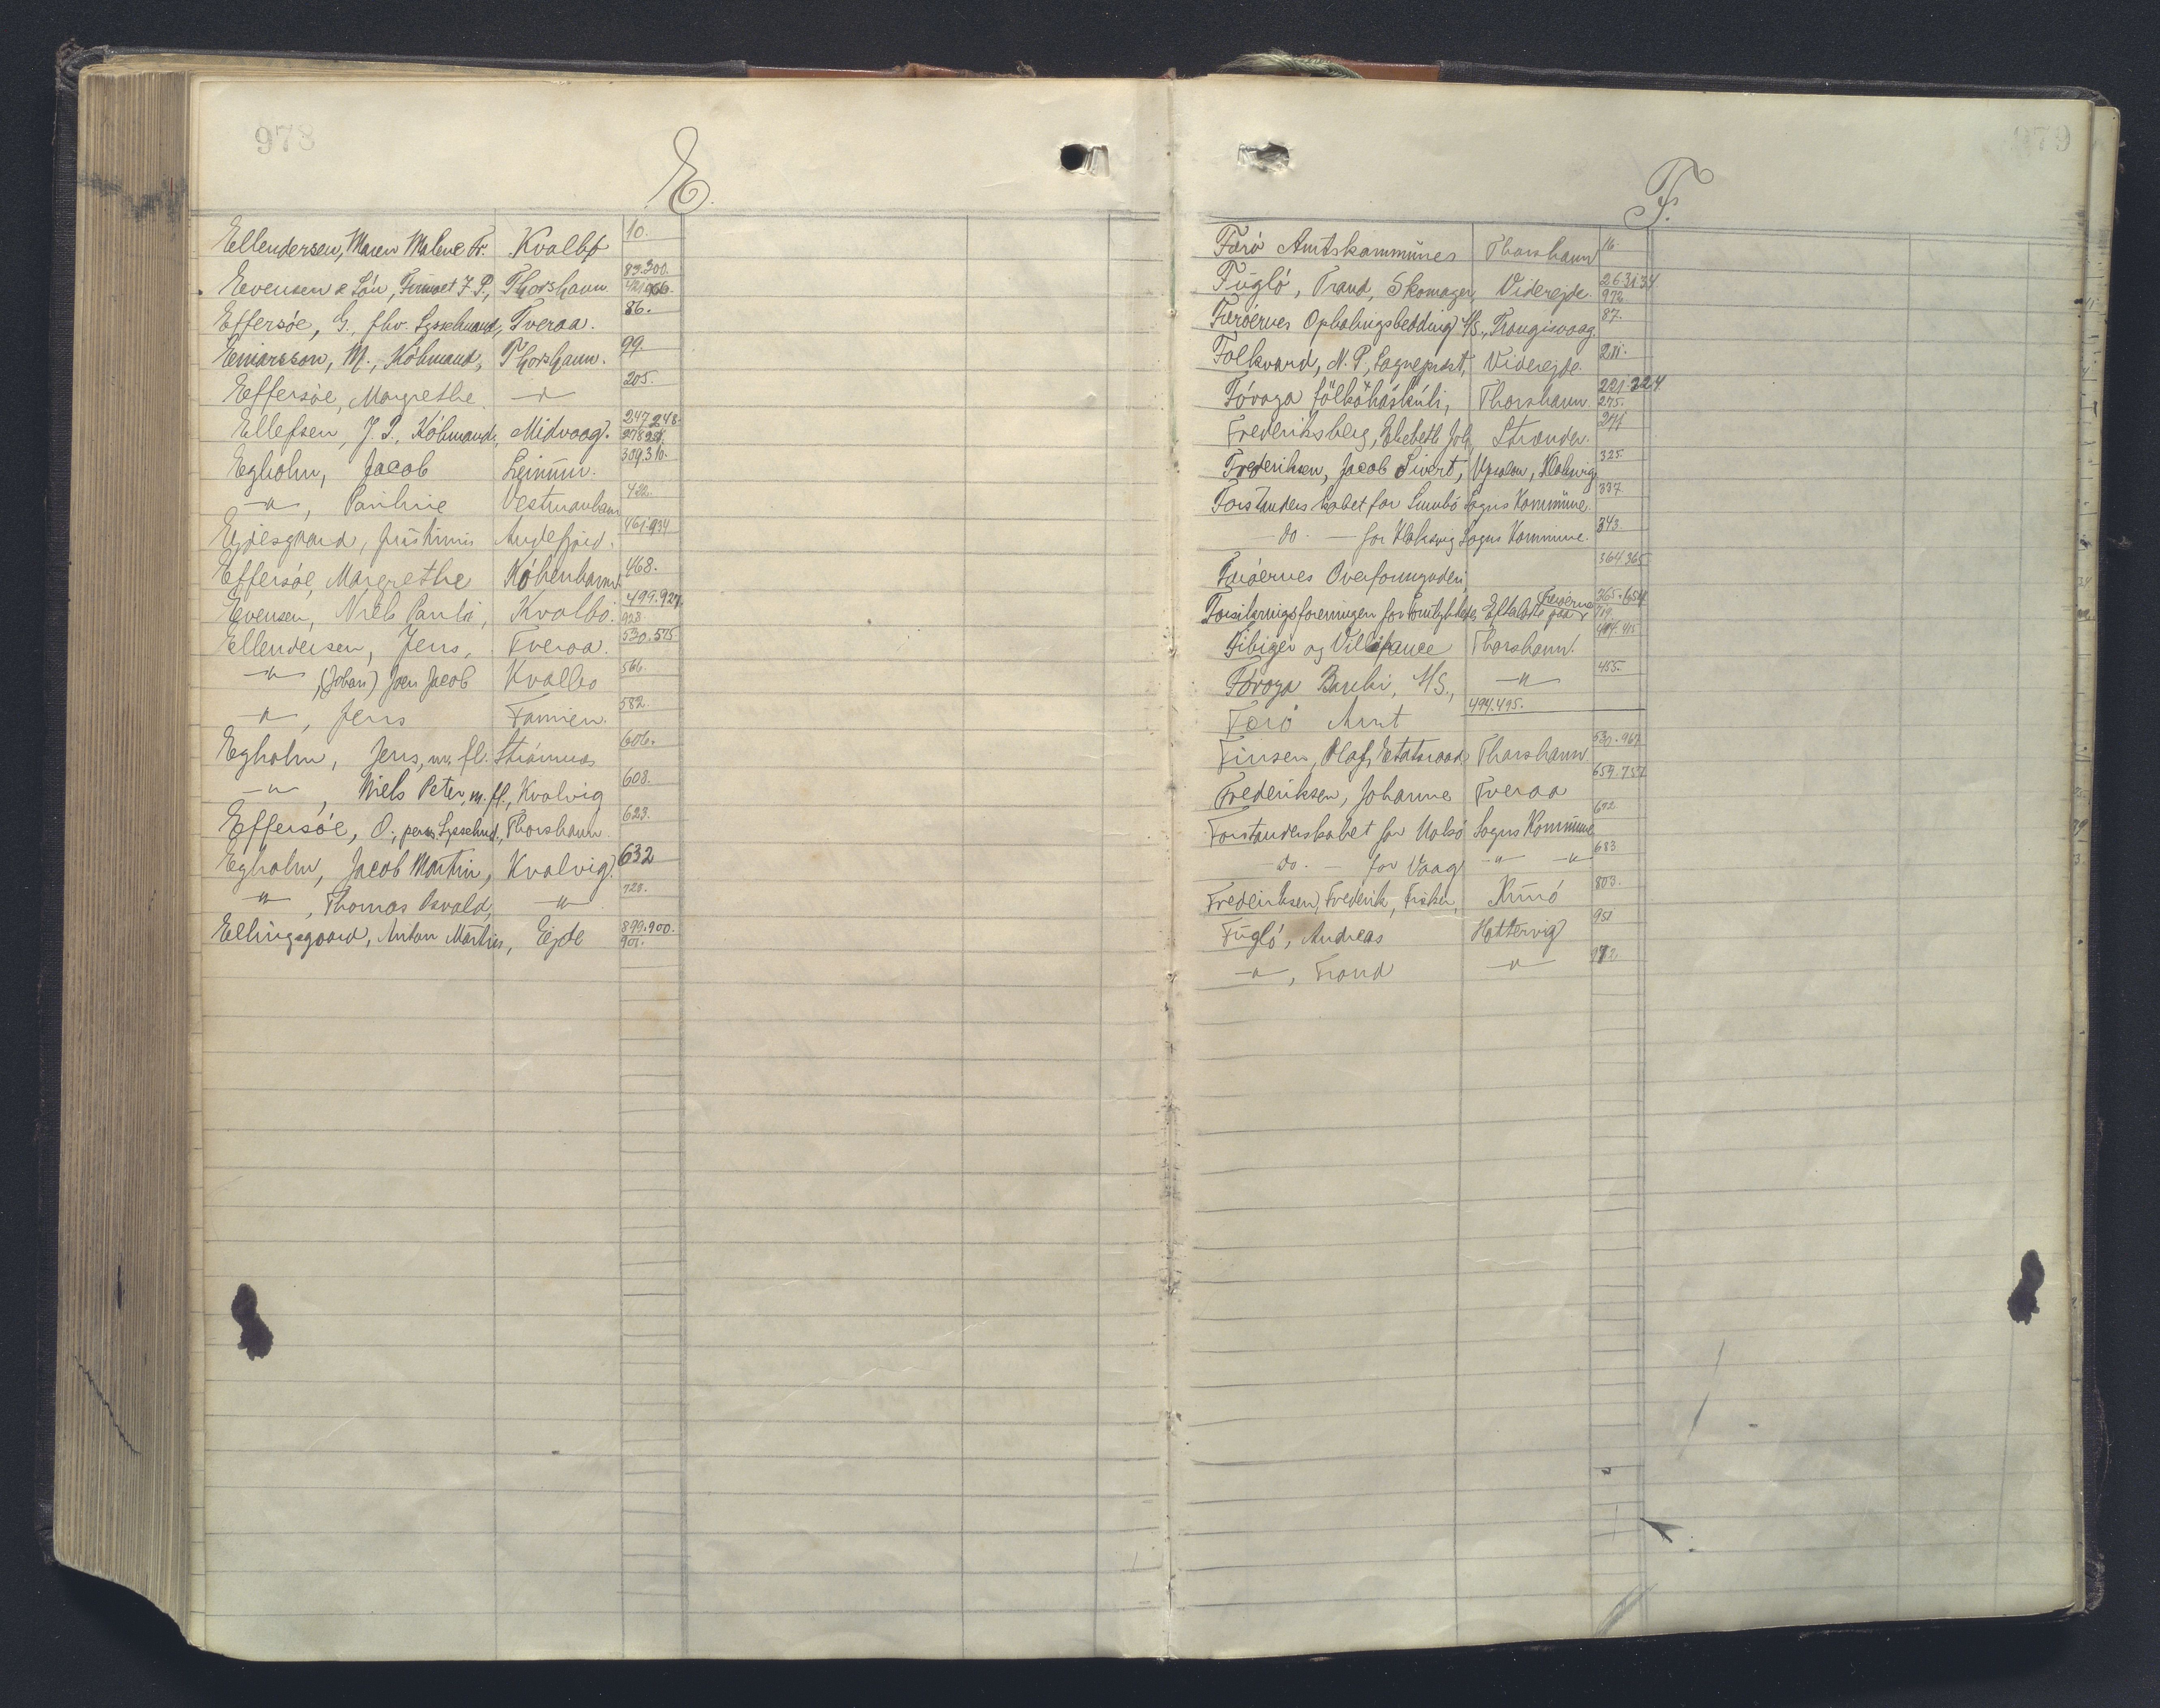 978
E.
Ellendersen, Maren Malene Fr. Kvalbø 10.
Evensen & Sön, Firmaet J. P., Thorshavn 83.300. 421.966.
Effersöe, G., fhv. Sysselmand, Tveraa. 86.
Einarsson, M., Köbmand, Thorshavn. 99
Effersöe, Margrethe —"— 205.
Ellefsen, J. P., Köbmand, Midvaag. 247.248.
Egholm, Jacob Leinum. 309.310.
—"—, Pauline Vestmanhavn 422.
Ejdesgaard, Andefjord. 461.934
Effersöe, Margrethe Köbenhavn 468.
Evensen, Niels Pauli, Kvalbö. 499.927. 928
Ellendersen, Jens, Tveraa. 530.575.
—"—, (Johan) Joen Jacob Kvalbö 566.
—"—, Jens Famien. 582.
Egholm, Jens, m. fl. Strömnæs 606.
—"—, Niels Peter, m. fl., Kvalvig 608.
Effersöe, O., pens. Sysselmd., Thorshavn. 623.
Egholm, Jacob Martin, Kvalvig. 632
—"—, Thomas Osvald, —"— 728.
Ellingsgaard, Anton Martin, Ejde 899.900. 901.
979
F.
Færö Amtskommunes Thorshavn 16.
Fugló, Trand, Skomager, Viderejde. 26.31.34 972
Færöernes Ophalingsbedding A/S., Trangisvaag. 87.
Folkvard, N. P., Sognepræst, Viderejde. 211.
Fóroya fólkaháskúli, Thorshavn. 221.224 275.
Frederiksberg, Elsebeth Joh. Strender.
Frederiksen, Jacob Sivert, Klaksvig 325.
Forstanderskabet for Sumbö Sogns Kommune. 337.
do. — for Klaksvig Sogns Kommune. 343.
Færöernes Overformynderi, 364.365
Forsikringsforeningen for Færöerne
Fibiger og Villefrance Thorshavn. 414.415
Föroya Banki, A/S., —"— 455.
Færö Amt 494.495.
Finsen, Olaf, Etatsraad, Thorshavn 530.967
Frederiksen, Johanne Tveraa 659.757
Forstanderskabet for Nolsö Sogns Kommune 672
do. — for Vaag —"— —"— 683.
Frederiksen, Frederik, Fisker, Kunó 803.
Fugló, Andreas Hattervig 951
—"—, Trond —"— 972